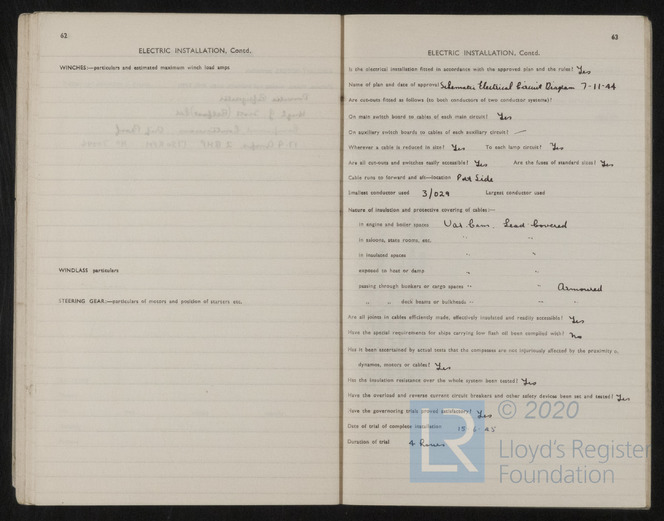 62
ELECTRIC INSTALLATION, Contd.
WINCHES:—particulars and estimated maximum winch load amps
WINDLASS particulars
STEERING GEAR:—particulars of motors and position of starters etc.
63
ELECTRIC INSTALLATION, Contd.
Is the electrical installation fitted in accordance with the approved plan and the rules? Yes
Name of plan and date of approval Schematic Electrical Circuit Diagram 7-11-44
Are cut-outs fitted as follows (to both conductors of two conductor systems)?
On main switch board to cables of each main circuit? Yes
On auxiliary switch boards to cables of each auxiliary circuit? —
Wherever a cable is reduced in size? Yes To each lamp circuit? Yes
Are all cut-outs and switches easily accessible? Yes Are the fuses of standard sizes? Yes
Cable runs to forward and aft—location Port Side
Smallest conductor used 3/029 Largest conductor used
Nature of insulation and protective covering of cables:—
in engine and boiler spaces Var. Cam. Lead Covered
in saloons, state rooms, etc. " "
in insulated spaces " "
exposed to heat or damp " "
passing through bunkers or cargo spaces " " Armoured
" " deck beams or bulkheads " " "
Are all joints in cables efficiently made, effectively insulated and readily accessible? Yes
Have the special requirements for ships carrying low flash oil been complied with? No
Has it been ascertained by actual tests that the compasses are not injuriously affected by the proximity o.
dynamos, motors or cables? Yes
Has the insulation resistance over the whole system been tested? Yes
Have the overload and reverse current circuit breakers and other safety devices been set and tested? Yes
Have the governoring trials proved satisfactory? Yes
Date of trial of complete installation 15-6-45
Duration of trial 4 hours
LR
© 2020
Lloyd's Register
Foundation